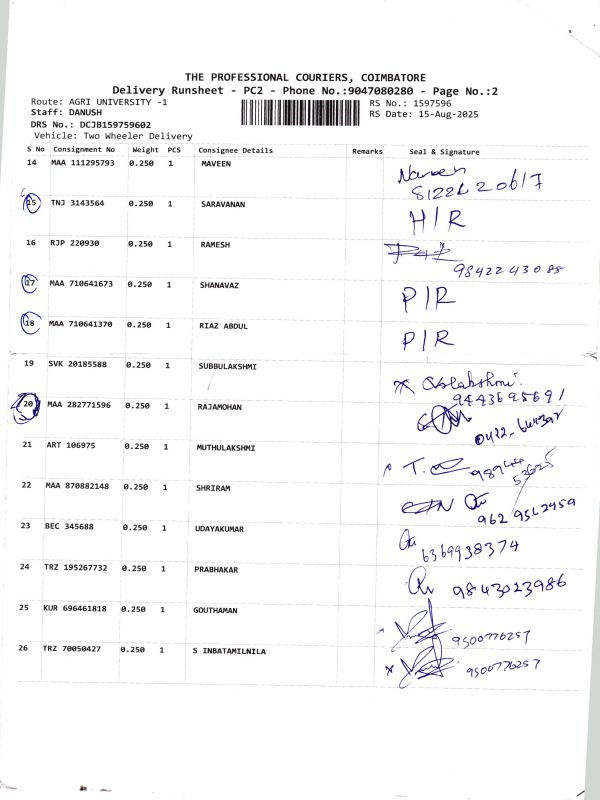 THE PROFESSIONAL COURIERS, COIMBATORE
Delivery Runsheet - PC2 - Phone No.:9047080280 - Page No.:2
Route: AGRI UNIVERSITY -1 RS No.: 1597596
Staff: DANUSH RS Date: 15-Aug-2025
DRS No.: DCJB159759602
Vehicle: Two Wheeler Delivery
S No Consignment No Weight PCS Consignee Details Remarks Seal & Signature
14 MAA 111295793 0.250 1 MAVEEN Naveen
15 TNJ 3143564 0.250 1 SARAVANAN H/R
16 RJP 220930 0.250 1 RAMESH
9842243088
17 MAA 710641673 0.250 1 SHANAVAZ P/R
18 MAA 710641370 0.250 1 RIAZ ABDUL P/R
19 SVK 20185588 0.250 1 SUBBULAKSHMI
9443695691
20 MAA 282771596 0.250 1 RAJAMOHAN
21 ART 106975 0.250 1 MUTHULAKSHMI
22 MAA 870882148 0.250 1 SHRIRAM
23 BEC 345688 0.250 1 UDAYAKUMAR
6369938374
24 TRZ 195267732 0.250 1 PRABHAKAR 9843023986
25 KUR 696461818 0.250 1 GOUTHAMAN 9500776257
26 TRZ 70050427 0.250 1 S INBATAMILNILA 9500776257